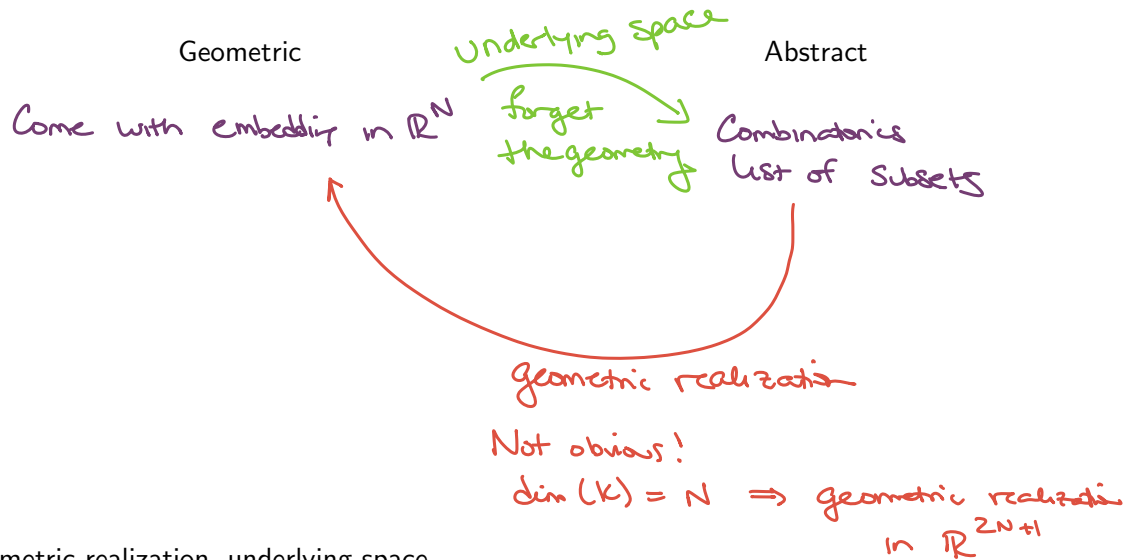 Geometric
underlying space
Abstract
Come with embedding in ℝᴺ
forget
the geometry
Combinatorics
list of subsets
geometric realization
Not obvious!
dim (K) = N ⇒ geometric realization
in ℝ²ᴺ⁺¹
metric realization, underlying space